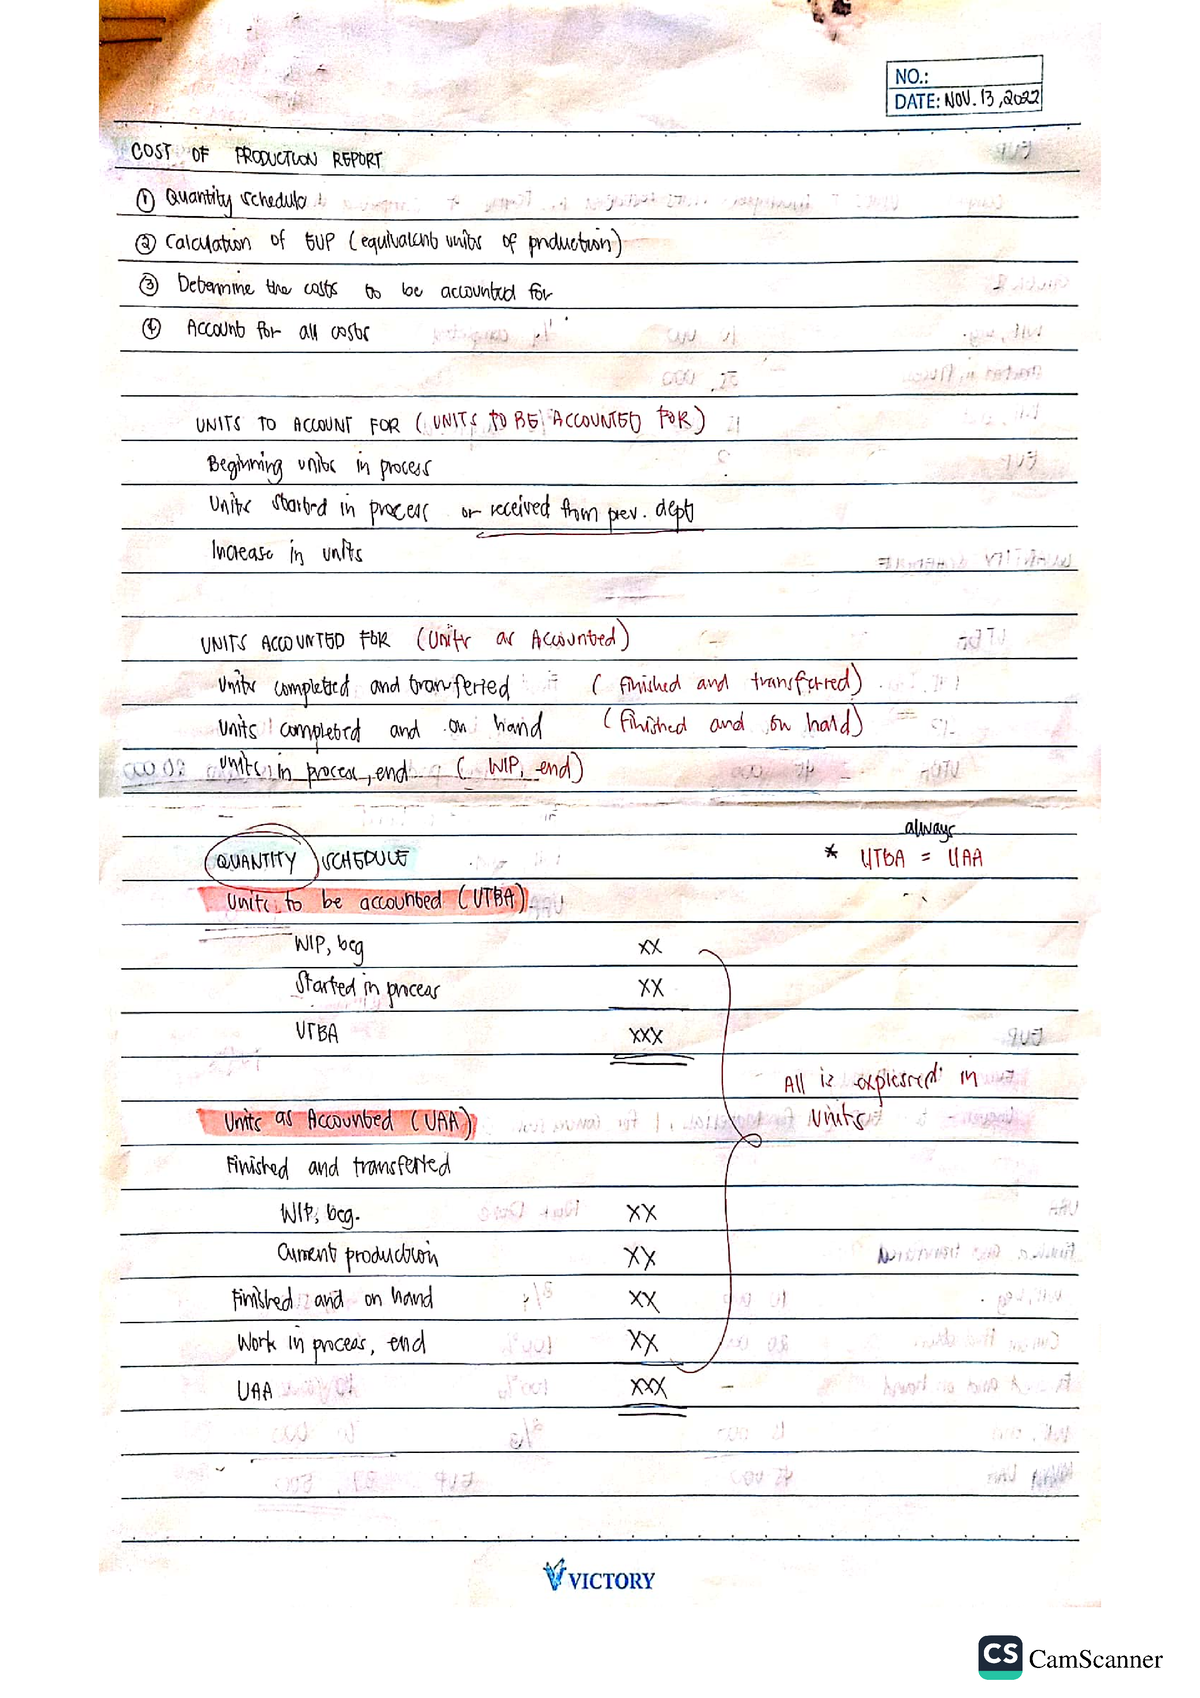 NO.:
DATE: NOV. 13, 2022
COST OF PRODUCTION REPORT
① Quantity schedule
② Calculation of EUP (equivalent units of production)
③ Determine the costs to be accounted for
④ Account for all costs
UNITS TO ACCOUNT FOR (UNITS TO BE ACCOUNTED FOR)
Beginning units in process
Units started in process or received from prev. dept
Increase in units
UNITS ACCOUNTED FOR (Units as Accounted)
Units completed and transferred (finished and transferred)
Units completed and on hand (finished and on hand)
units in process, end (WIP, end)
always
QUANTITY SCHEDULE * UTBA = UAA
Units to be accounted (UTBA)
WIP, beg XX
Started in process XX
UTBA XXX
All is expressed in
Units
Units as Accounted (UAA)
Finished and transferred
WIP, beg. XX
Current production XX
Finished and on hand XX
Work in process, end XX
UAA XXX
VICTORY
CS CamScanner